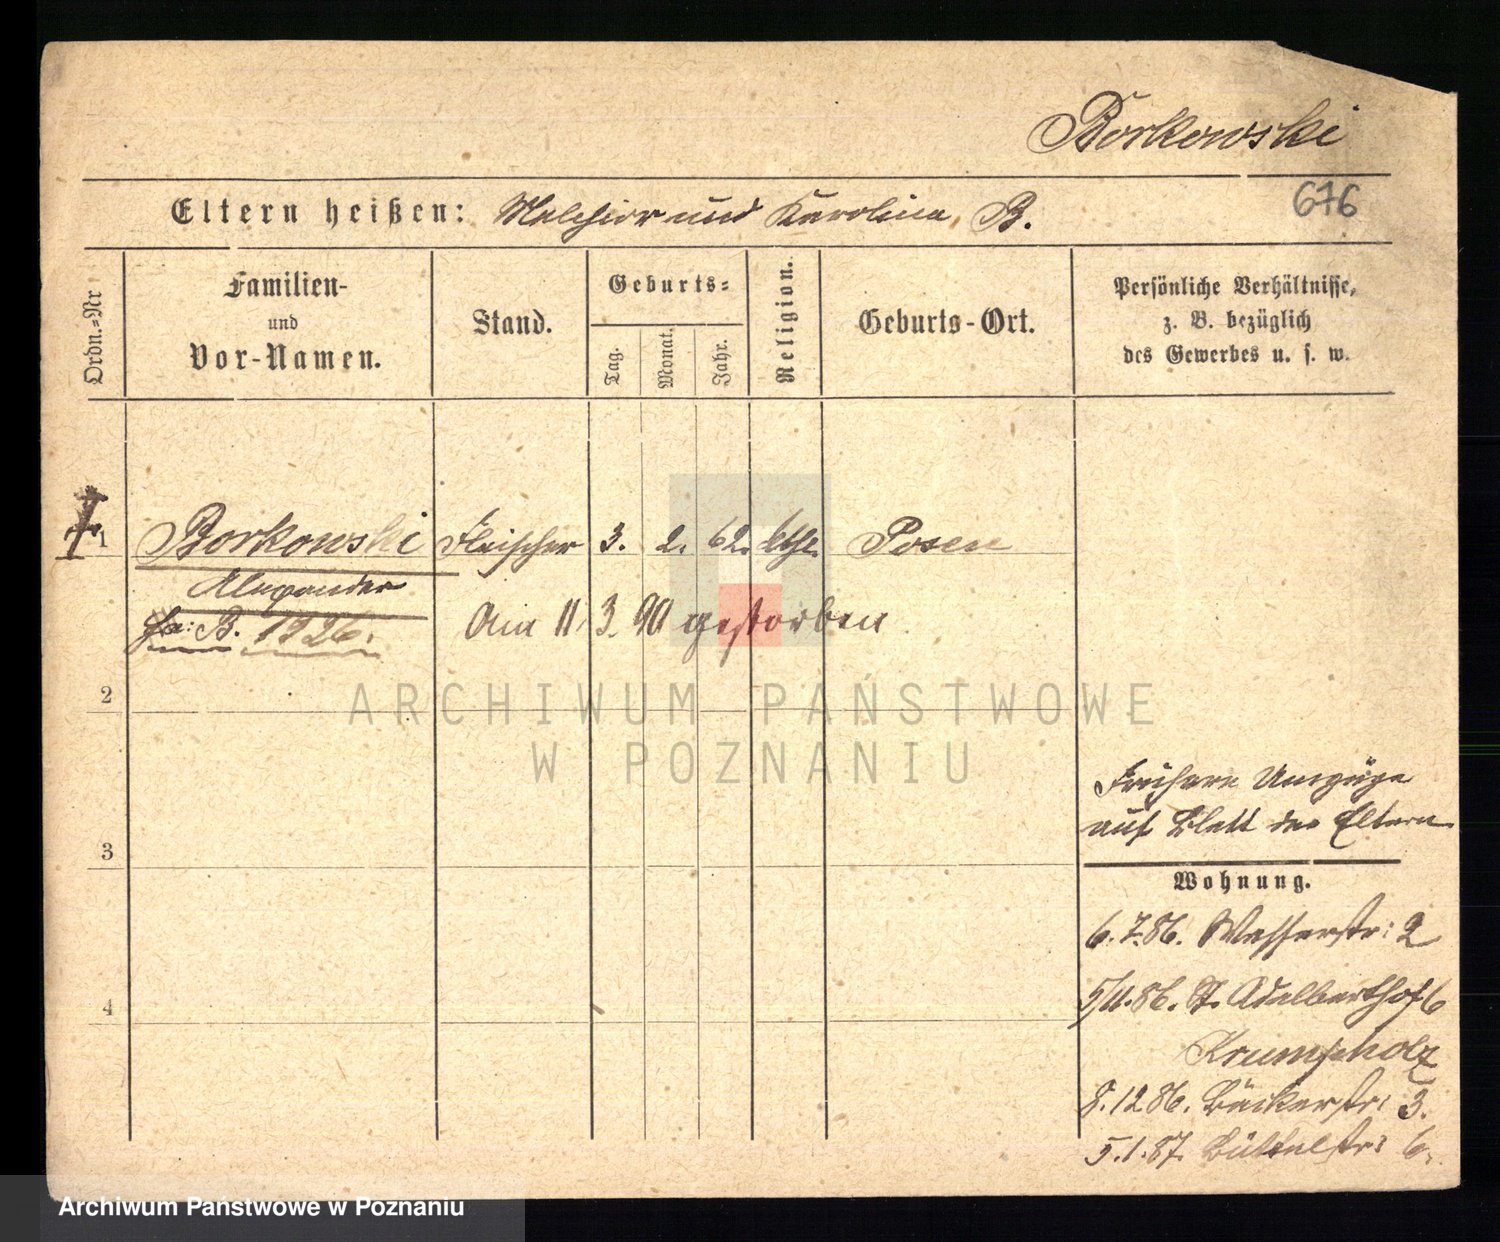 Borkowski
676
Eltern heißen: Melchior und Karolina B.
Ordn.=Nr
Familien-
und
Vor-Namen.
Stand.
Geburts=
Tag.
Monat.
Jahr.
Religion.
Geburts-Ort.
Persönliche Verhältnisse,
z. B. bezüglich
des Gewerbes u. s. w.
1 Borkowski Fleischer 3. 2. 62. kth. Posen
Alexander
B. 1926.
Am 11. 3. 90 gestorben
2
ARCHIWUM PAŃSTWOWE
W POZNANIU
Frühere Umzüge
auf Blatt der Eltern
3
Wohnung.
6.7.86. Wasserstr: 2
5/11.86. St. Adalberthof 6
4
Krumpholz
8.12.86. Bäckerstr: 3.
5.1.87. Büttelstr: 6.
Archiwum Państwowe w Poznaniu